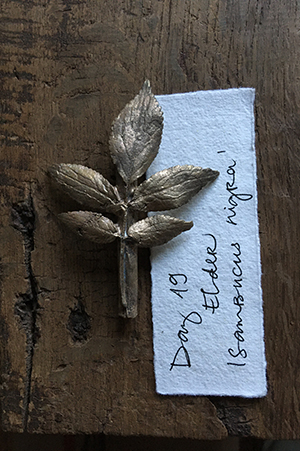 Day 19
Elder
'Sambucus nigra'